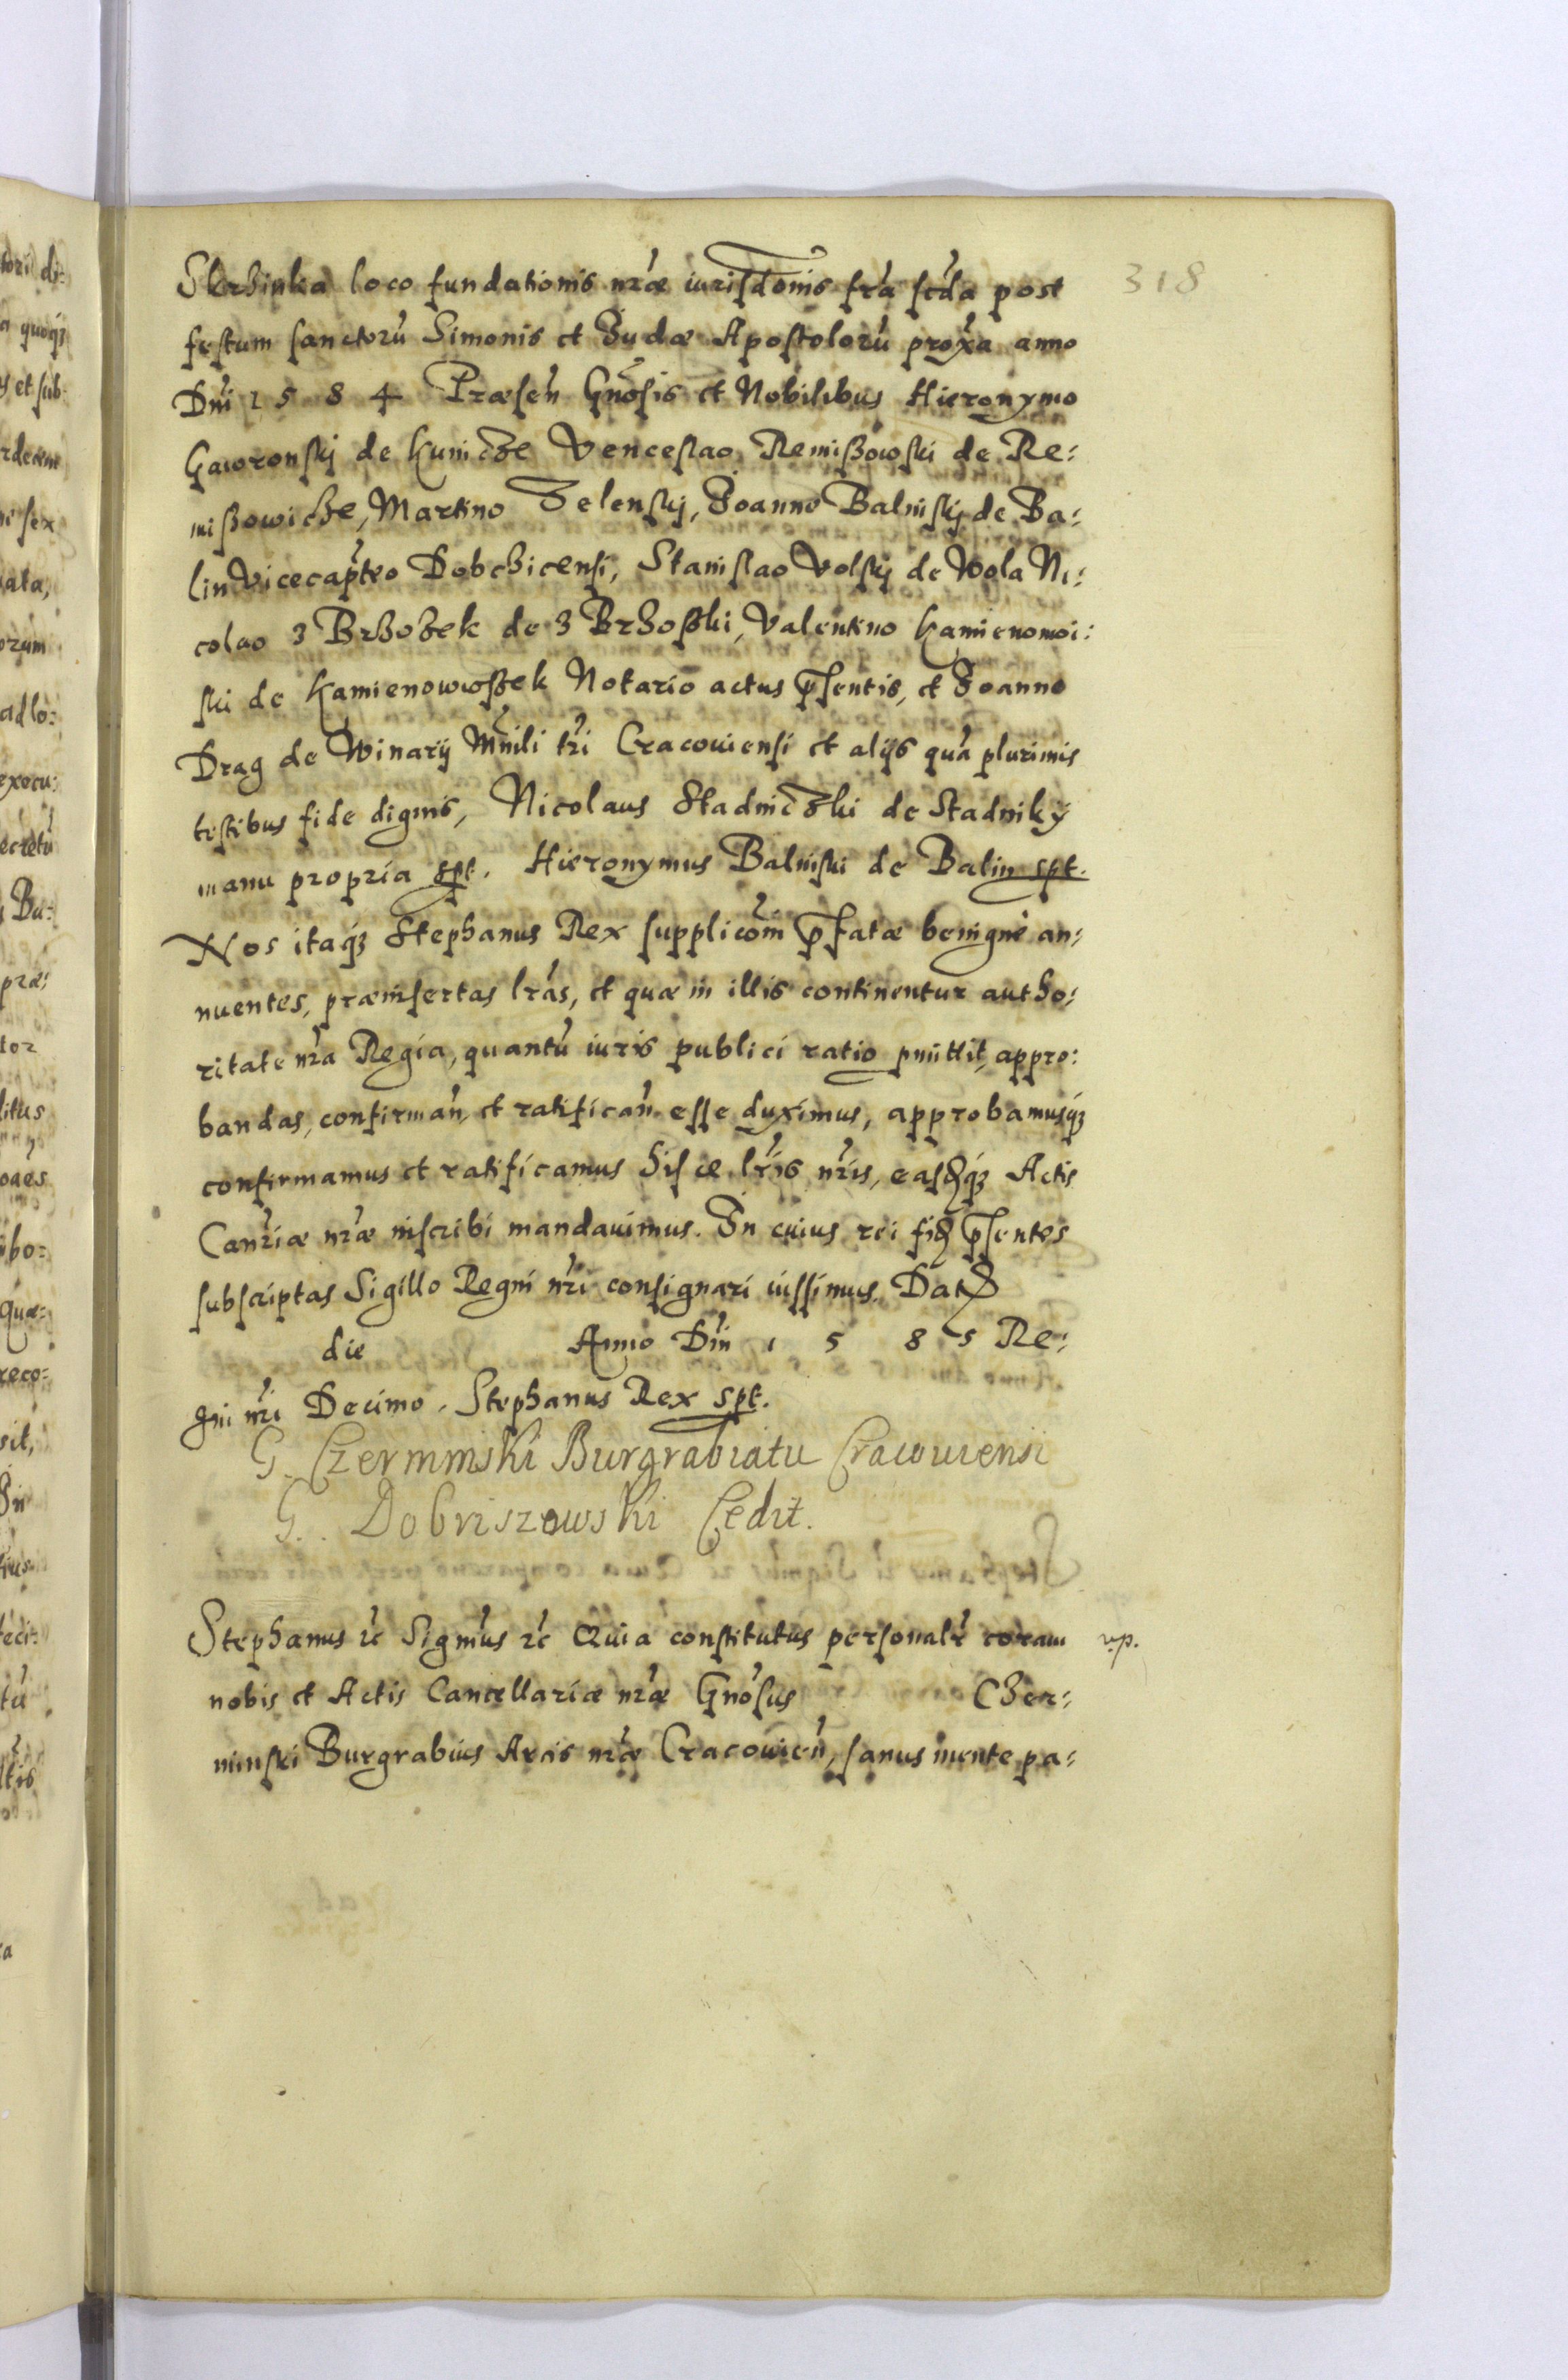 318
Skrzinka loco fundationis nr̃æ iurisd̃onis fr̃a scd̃a post
festum sanctorũ Simonis et Judæ Apostolorũ prox̃a anno
Dñi 1584 Præseñ Gnõsis et Nobilibus Hieronymo
Gaworonskj de Kunicze Venceslao Remiszowski de Re:
miszowicze, Martino Zelenskj, Joanne Balniskj de Ba:
lin Vicecap̃teo Dobchicensi, Stanislao Volskj de Wola Ni:
colao z Brzozek de z Brzoszki, Valentino Kamienowoi:
ski de Kamienowoszek Notario actus p̃sentis, et Joanne
Drag de Winarÿ Mñili tr̃i Cracouiensi et alijs quã plurimis
testibus fide dignis, Nicolaus Stadniczki de Stadnikÿ
manu propria spt. Hieronymus Balniski de Balin spt.
Nos itaq́ꝫ Stephanus Rex supplicõm p̃fatæ benignè an:
nuentes, præinsertas lr̃as, et quæ in illis continentur autho:
ritate nr̃a Regia, quantũ iuris publici ratio pmittit, appro:
bandas, confirmañ, et ratificañ esse duximus, approbamusq́ꝫ
confirmamus et ratificamus hisce lr̃is nr̃is, easdq́ꝫ Actis
Canr̃iæ nr̃æ inscribi mandauimus. In cuius rei fid p̃sentes
subscriptas Sigillo Regni nr̃i consignari iussimus. Dat
die Anno Dñi 1585 Re:
gni nr̃i Decimo. Stephanus Rex spt.
G. Czerminski Burgrabiatu Cracouiensi
G. Dobriszowski Cedit.
Stephanus rc̃ Sigm̃us rc̃ Quia constitutus personalr̃ coram
v.p.
nobis et Actis Cancellariæ nr̃æ Gnõsus Czer:
minski Burgrabius Arcis nr̃æ Cracouieñ, sanus mente pa: